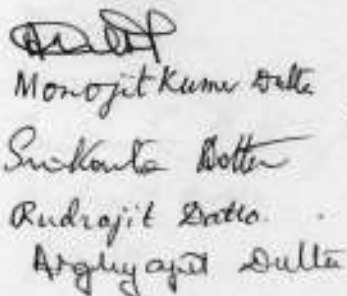 Monojit Kumar Dutta
Srikanta Dutta
Rudrajit Dutta.
Arghyajit Dutta